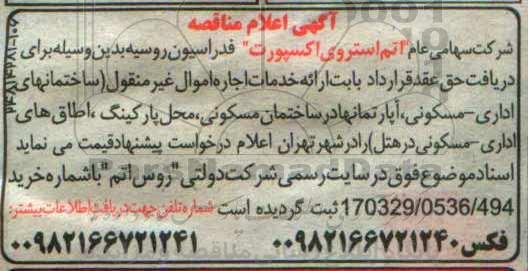 آگهی اعلام مناقصه
شرکت سهامی عام "اتم استروی اکسپورت" فدراسیون روسیه بدین وسیله برای
دریافت حق عقد قرارداد بابت ارائه خدمات اجاره اموال غیر منقول (ساختمانهای
اداری -مسکونی، آپارتمانها در ساختمان مسکونی، محل پارکینگ ،اطاق های
اداری -مسکونی در هتل) را در شهر تهران اعلام درخواست پیشنهاد قیمت می نماید
اسناد موضوع فوق در سایت رسمی شرکت دولتی "روس اتم" باشماره خرید
170329/0536/494 ثبت گردیده است شماره تلفن جهت دریافت اطلاعات بیشتر:
فکس ۰۰۹۸۲۱۶۶۷۲۱۲۴۰ ۰۰۹۸۲۱۶۶۷۲۱۲۴۱